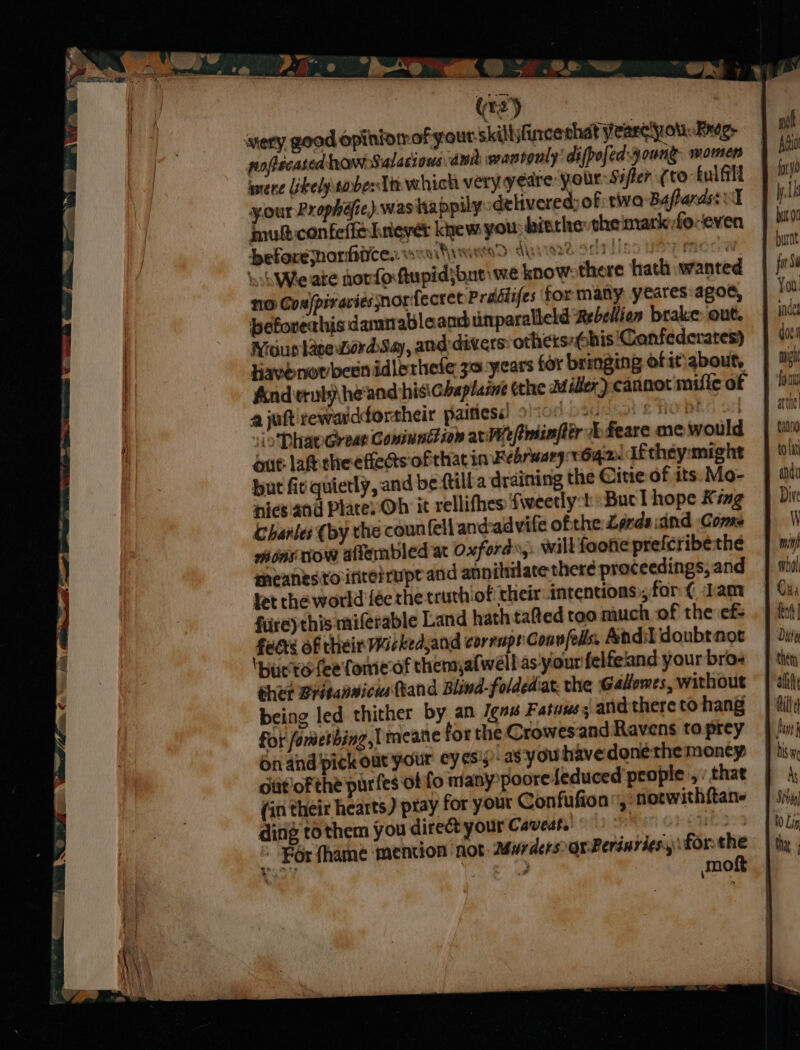 (12)
very good opinion of your skill, since that yeare you Prog-
nosticated how Salacious and wantonly disposed young women
were likely to be: In which very yeare your Sister (to fulfill
your Prophesie) was happily delivered of two Bastards: I
must confesse I never knew you hit the the marke so even
before, nor since.
We are not so stupid, but we know there hath wanted
no Conspiracies, nor secret Practises for many yeares agoe,
before this damnable and unparalleld Rebellion brake out.
Your Lord Say, and divers others (his Confederates)
have not been idle these 30. years for bringing of it about,
And truly he and his Chaplaine (the Miller) cannot misse of
a just reward for their paines.
That Great Coniunction at Westminster I feare me would
out last the effects of that in February 1642. If they might
but sit quietly, and be still a draining the Citie of its Mo-
nies and Plate. Oh it rellishes sweetly! But I hope King
Charles (by the counsell and advise of the Lords and Com-
mons now assembled at Oxford) will soone prescribe the
meanes to interrupt and annihilate there proceedings, and
let the world see the truth of their intentions; for (I am
sure) this miserable Land hath tasted too much of the ef-
fects of their Wicked, and corrupt Counsells. And I doubt not
but to see some of them, aswell as your selfe and your bro-
ther Britannicus stand Blind-folded at the Gallowes, without
being led thither by an Ignis Fatuus; and there to hang
for something, I meane for the Crowes and Ravens to prey
on and pick out your eyes; as you have done the money
out of the purses of so many poore seduced people, that
(in their hearts) pray for your Confusion, notwithstan-
ding to them you direct your Caveat.
For shame mention not Murders or Periuries, for the
most